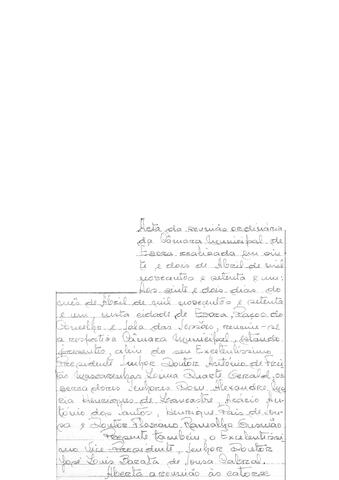 Acta da reunião ordinária
da Câmara Municipal de
Évora realizada em vin-
te e dois de Abril de mil
novecentos e setenta e um:
Aos vinte e dois dias do
mês de Abril de mil novecentos e setenta
e um, nesta cidade de Évora, Paços do
Concelho e sala das Sessões, reuniu-se
a respectiva Câmara Municipal, estando
presentes, além do seu Excelentíssimo
Presidente Senhor Doutor António de
Mascarenhas Duarte os
vereadores Senhores Dom Alexandre
Henriques de Lancastre, Acácio An-
tónio dos Santos, Henrique Pais de
e Doutor Ramalho
presente também o Excelentíssi-
mo Vice-Presidente, Senhor Doutor
José Luís Barata de Sousa Cabral.
Aberta a reunião às catorze